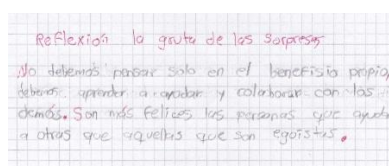 Reflexión la gruta de las sorpresas
No debemos pensar solo en el benefisio propio,
debemos aprender a ayudar y colaborar con los
demás. Son más felices las personas que ayud
a otras que aquellas que son egoistas.